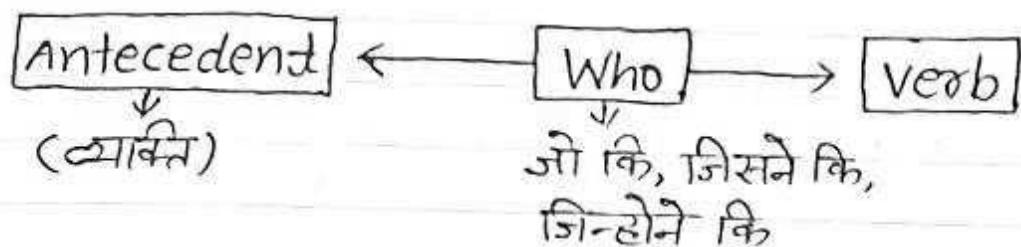 Antecedent ← Who → Verb
(व्यक्ति) जो कि, जिसने कि,
जिन्होने कि